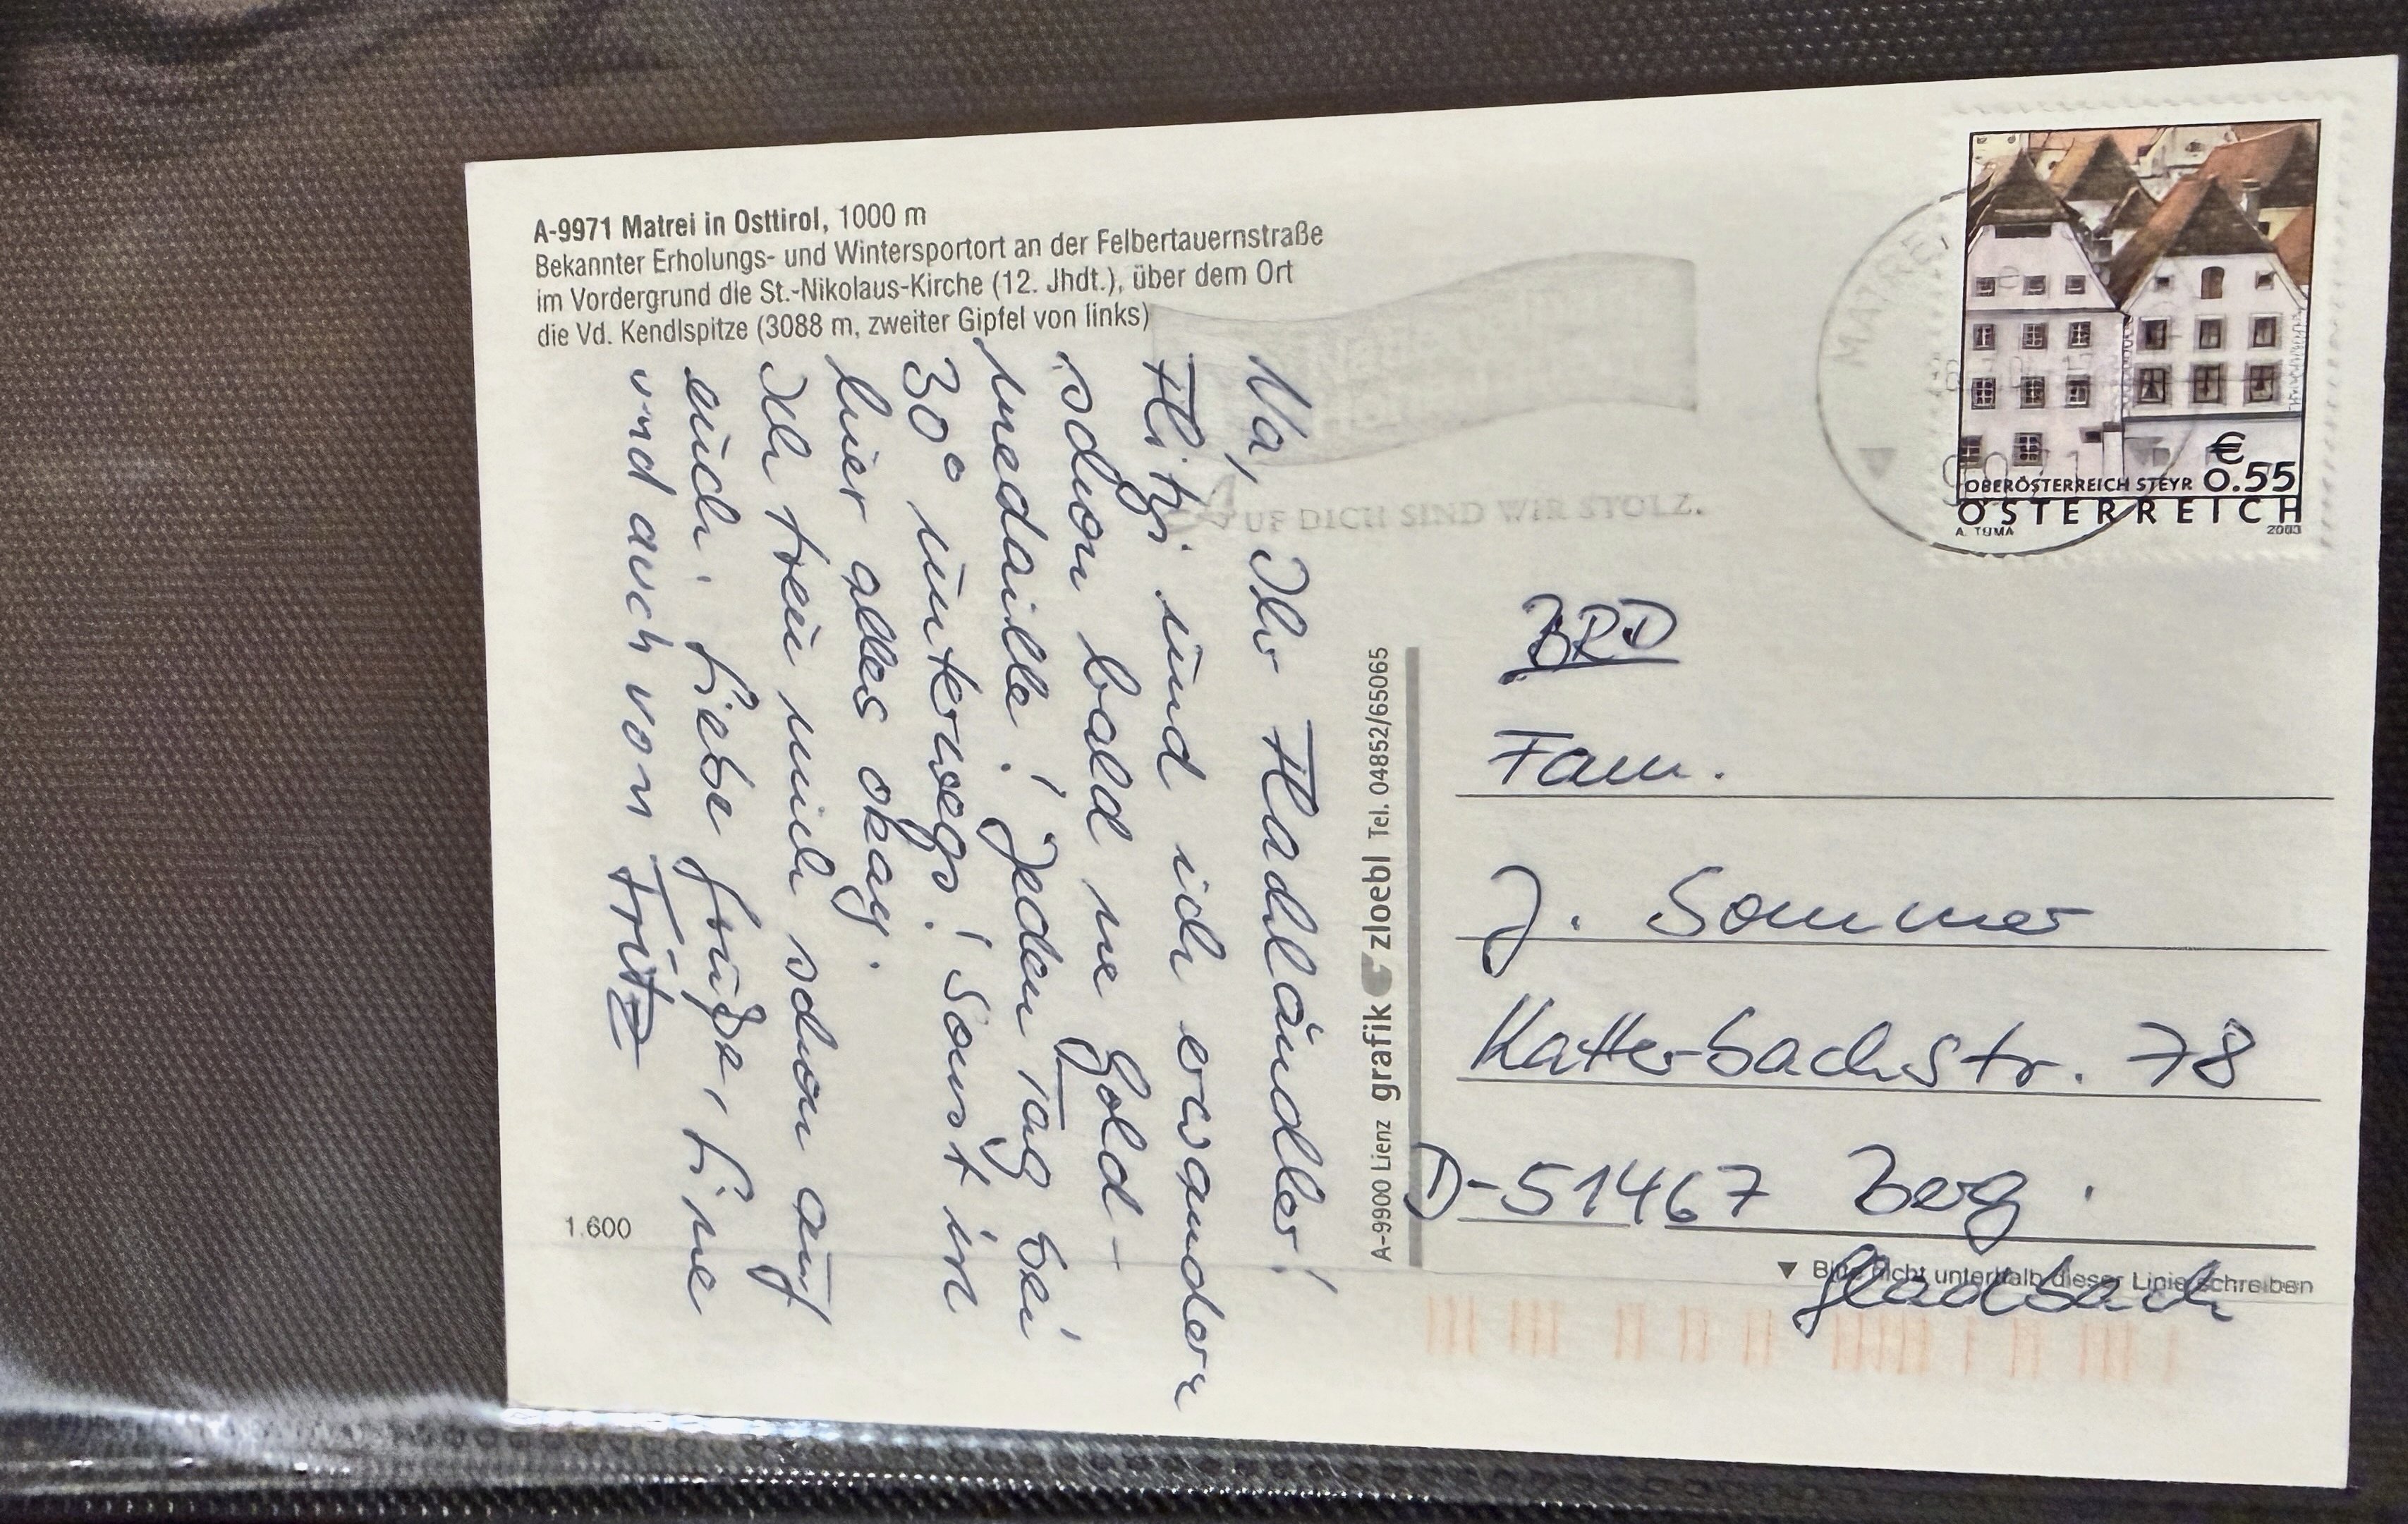 A-9971 Matrei in Osttirol, 1000 m
Bekannter Erholungs- und Wintersportort an der Felbertauernstraße
im Vordergrund die St.-Nikolaus-Kirche (12. Jhdt.), über dem Ort
die Vd. Kendlspitze (3088 m, zweiter Gipfel von links)
Na, Ihr Flachländler!
Flitzi und ich erwandern
schon bald ne Gold-
medaille! Jeden Tag bei
30° unterwegs! Sonst in
hier alles okay.
Ich freu mich schon auf
euch. Liebe Grüße, Eine
und auch von Fritz
1.600
A-9900 Lienz grafik zloebl Tel. 04852/65065
MATREI
AUF DICH SIND WIR STOLZ.
€
OBERÖSTERREICH STEYR 0.55
ÖSTERREICH
A. TUMA 2003
BRD
Fam.
J. Sommer
Katterbachstr. 78
D-51467 Berg.
Gladbach
Bitte nicht unterhalb dieser Linie schreiben